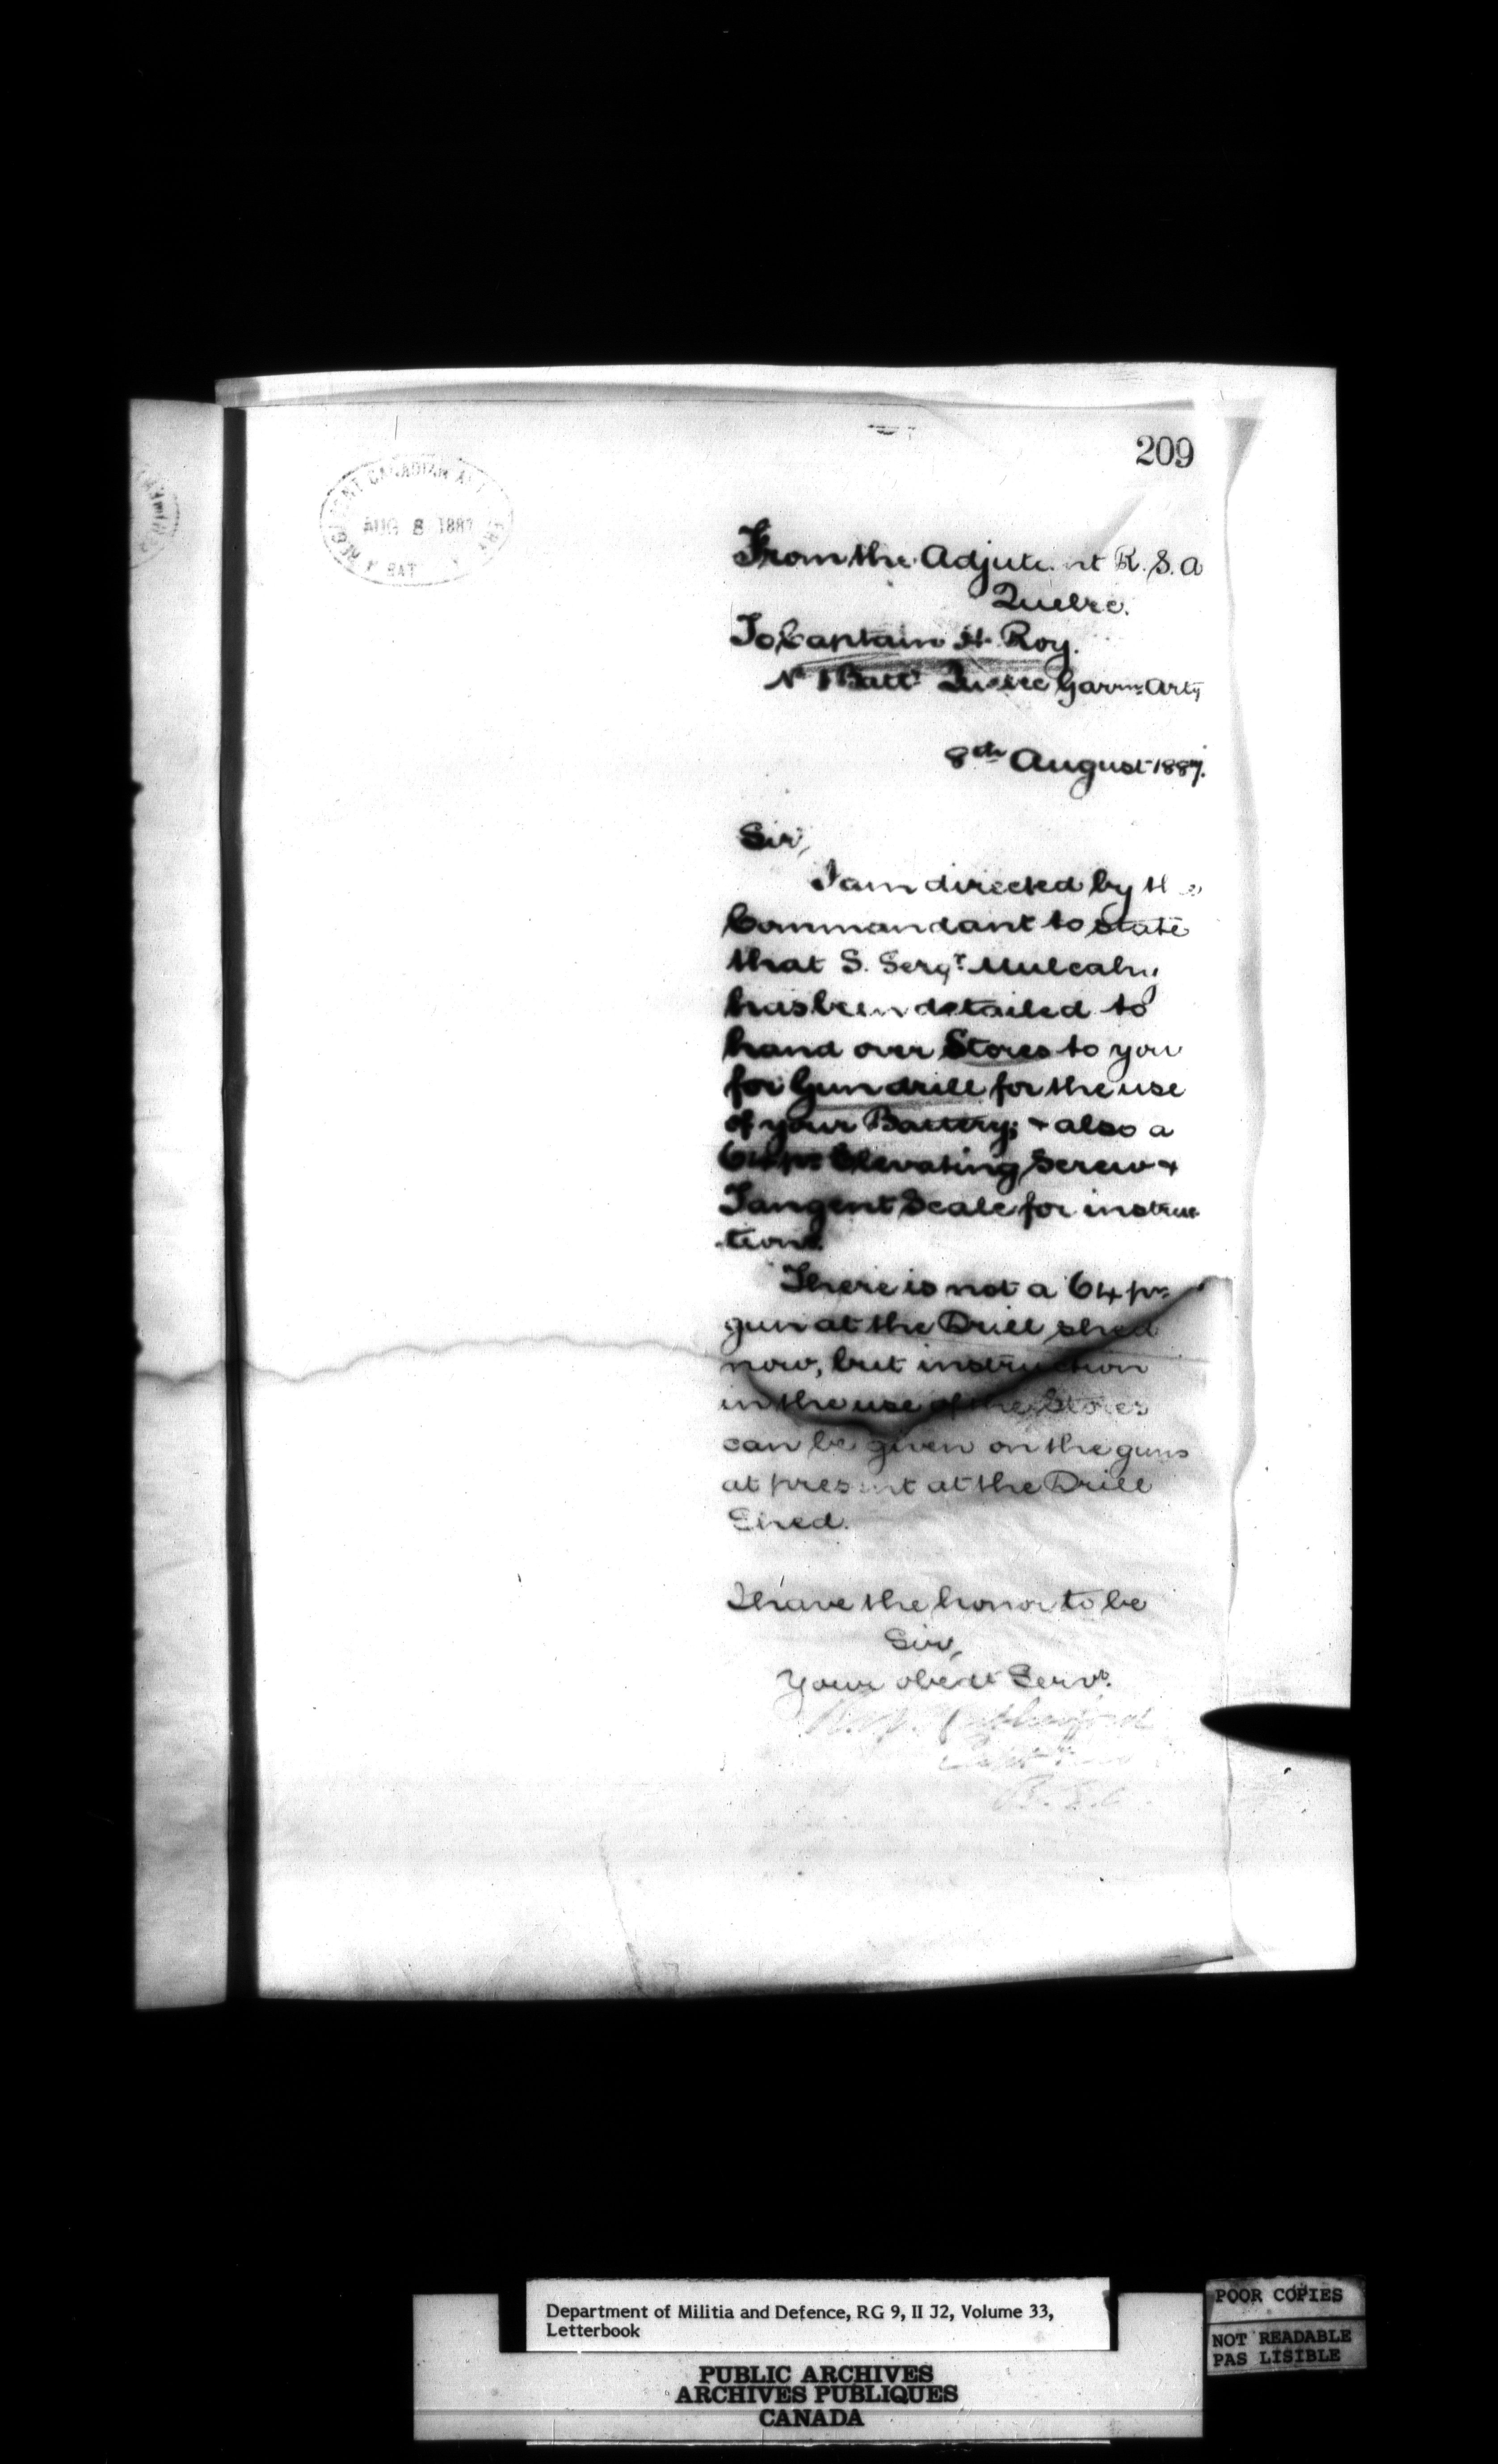 209
REGIMENT CANADIAN ARTILLERY
AUG 8 1887
BAT
From the Adjutant R. S. A
Quebec.
To Captain H. Roy.
No 1 Batt Quebec Garrn Arty
8th August 1887.
Sir,
I am directed by the
Commandant to state
that S. Sergt Mulcahy
has been detailed to
hand over Stores to you
for Gun drill for the use
of your Battery; & also a
64 pr Elevating Screw &
Tangent Scale for instruc
-tion.
There is not a 64 pr
gun at the Drill shed
now, but instruction
in the use of the Stores
can be given on the guns
at present at the Drill
Shed.
I have the honor to be
Sir,
Your obedt Servt.
Capt
Department of Militia and Defence, RG 9, II J2, Volume 33,
Letterbook
PUBLIC ARCHIVES
ARCHIVES PUBLIQUES
CANADA
POOR COPIES
NOT READABLE
PAS LISIBLE